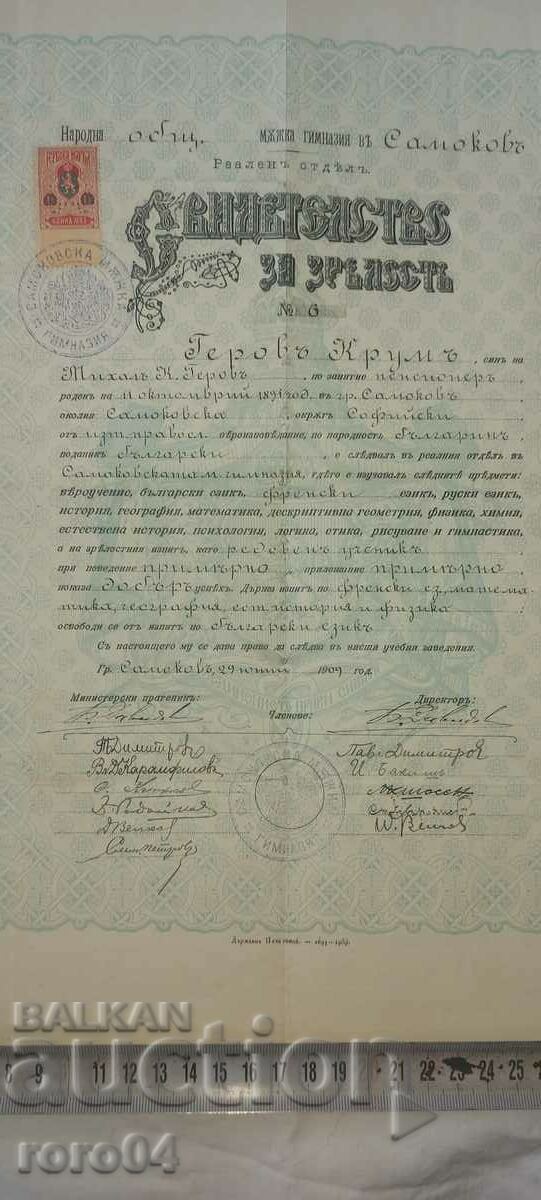 Народна общ. мѫжка гимназия въ Самоковъ
Реаленъ отдѣлъ.
Свидетелство
за зрѣлость
№ 6
САМОКОВСКА МѪЖКА
ГИМНАЗИЯ
Геровъ Крумъ, синъ на
Михаль К. Геровъ, по занятие пенсионеръ
роденъ на октомврий 1891 год. въ гр. Самоковъ
околия Самоковска, окрѫгъ Софийски
отъ изт. правосл. вѣроизповѣдание, по народность българинъ,
поданикъ български, е слѣдвалъ въ реалния отдѣлъ въ
Самоковската м. гимназия, гдѣто е изучавалъ слѣднитѣ прѣдмети:
вѣроучение, български езикъ, френски езикъ, руски езикъ,
история, география, математика, дескриптивна геометрия, физика, химия,
естествена история, психология, логика, етика, рисуване и гимнастика,
а на зрѣлостния изпитъ, като редовенъ ученикъ
при поведение примѣрно и прилежание примѣрно
показа добъръ успѣхъ. Държа изпитъ по френски ез., матема-
тика, география, ест. история и физика
освободи се отъ изпитъ по български езикъ
Съ настоящето му се дава право да слѣдва въ висши учебни заведения.
Гр. Самоковъ, 29 юний 1909 год.
Министерски пратеникъ: Директоръ:
Членове:
Т. Димитровъ Лав. Димитровъ
Вл. Д. Карамфиловъ
Д. Вѣлков
Слав. Петровъ
ГИМНАЗИЯ
Държавна Печатница. —
BALKAN
auction
8 9 11 12 13 14 15 16 17 18 19 21 22 23 24 25
roro04